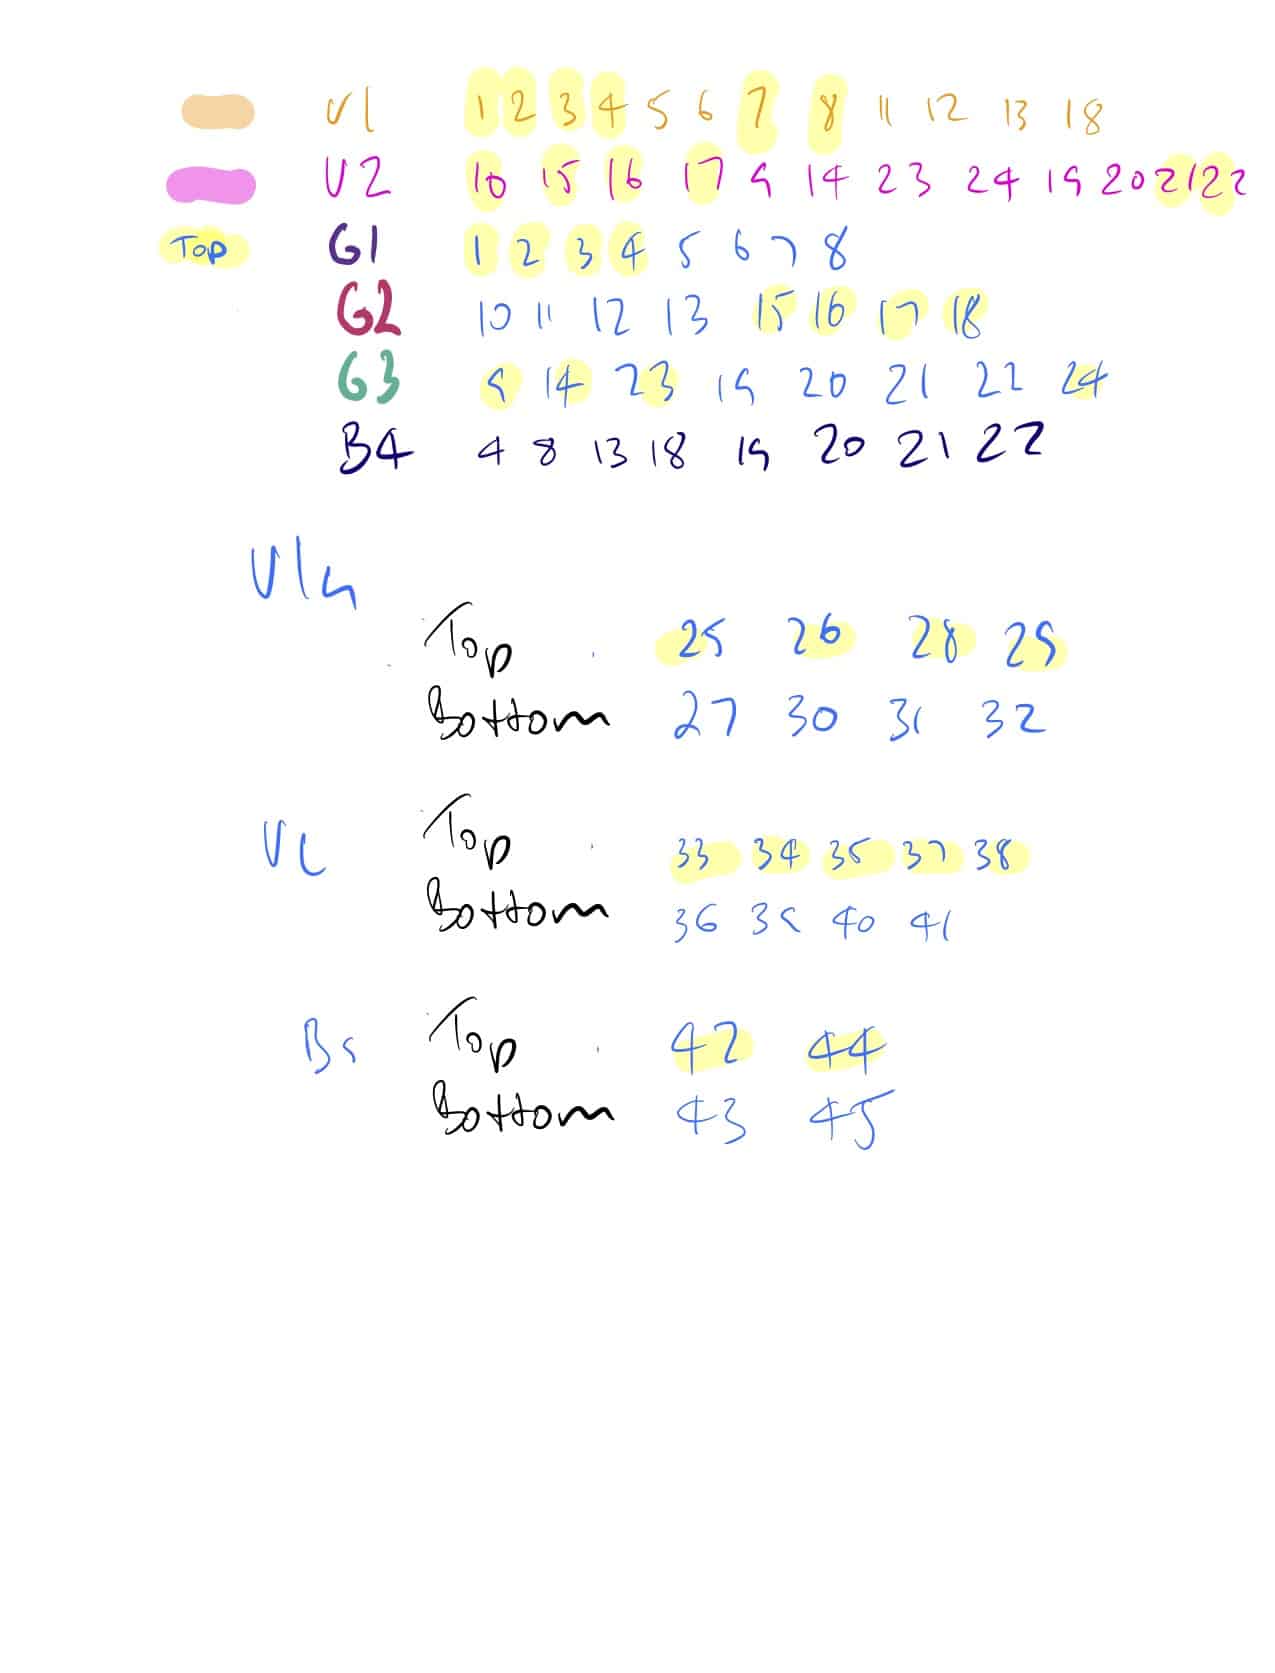 V1 1 2 3 4 5 6 7 8 11 12 13 18
V2 10 15 16 17 9 14 23 24 19 20 21 22
Top G1 1 2 3 4 5 6 7 8
G2 10 11 12 13 15 16 17 18
G3 9 14 23 19 20 21 22 24
B4 4 8 13 18 19 20 21 22
Vla
Top 25 26 28 29
Bottom 27 30 31 32
VC
Top 33 34 35 37 38
Bottom 36 39 40 41
Bs Top 42 44
Bottom 43 45